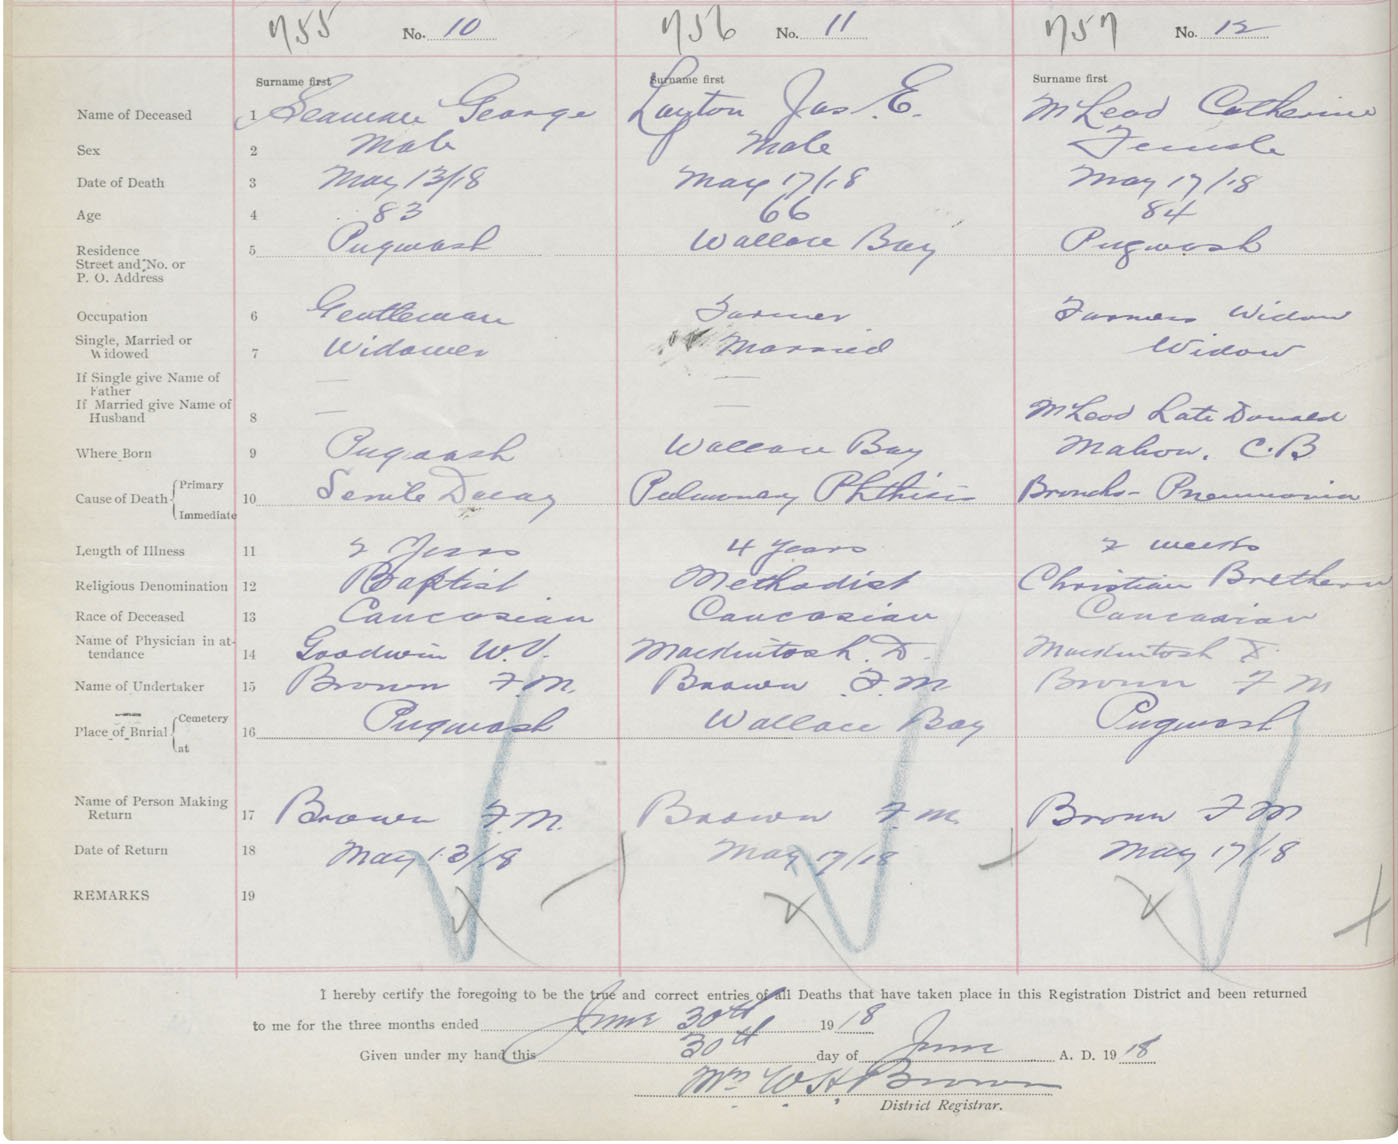 755 No. 10 756 No. 11 757 No. 12
Surname first Surname first Surname first
Name of Deceased 1 Seaman George Layton Jas. E. McLeod Catherine
Sex 2 Male Male Female
Date of Death 3 May 13/18 May 17/18 May 17/18
Age 4 83 66 84
Residence 5 Pugwash Wallace Bay Pugwash
Street and No. or
P. O. Address
Occupation 6 Gentleman Farmer Farmers Widow
Single, Married or
Widowed 7 Widower Married Widow
If Single give Name of
Father — —
If Married give Name of
Husband 8 — — McLeod Late Donald
Where Born 9 Pugwash Wallace Bay Mabou, C.B
Cause of Death { Primary
10 Senile Decay Pulmonary Phthisis Broncho-Pneumonia
Immediate
Length of Illness 11 2 Years 4 years 2 weeks
Religious Denomination 12 Baptist Methodist Christian Brethern
Race of Deceased 13 Caucasian Caucasian Caucasian
Name of Physician in at-
tendance 14 Goodwin W.V. Mackintosh D. Mackintosh D.
Name of Undertaker 15 Brown F.M. Brown F.M. Brown F M
Place of Burial { Cemetery
16 Pugwash Wallace Bay Pugwash
at
Name of Person Making
Return 17 Brown F.M. Brown F M. Brown F M
Date of Return 18 May 13/18 May 17/18 May 17/18
REMARKS 19
I hereby certify the foregoing to be the true and correct entries of all Deaths that have taken place in this Registration District and been returned
to me for the three months ended June 30th 1918
Given under my hand this 30th day of June A. D. 1918
Mrs W H Brown
District Registrar.